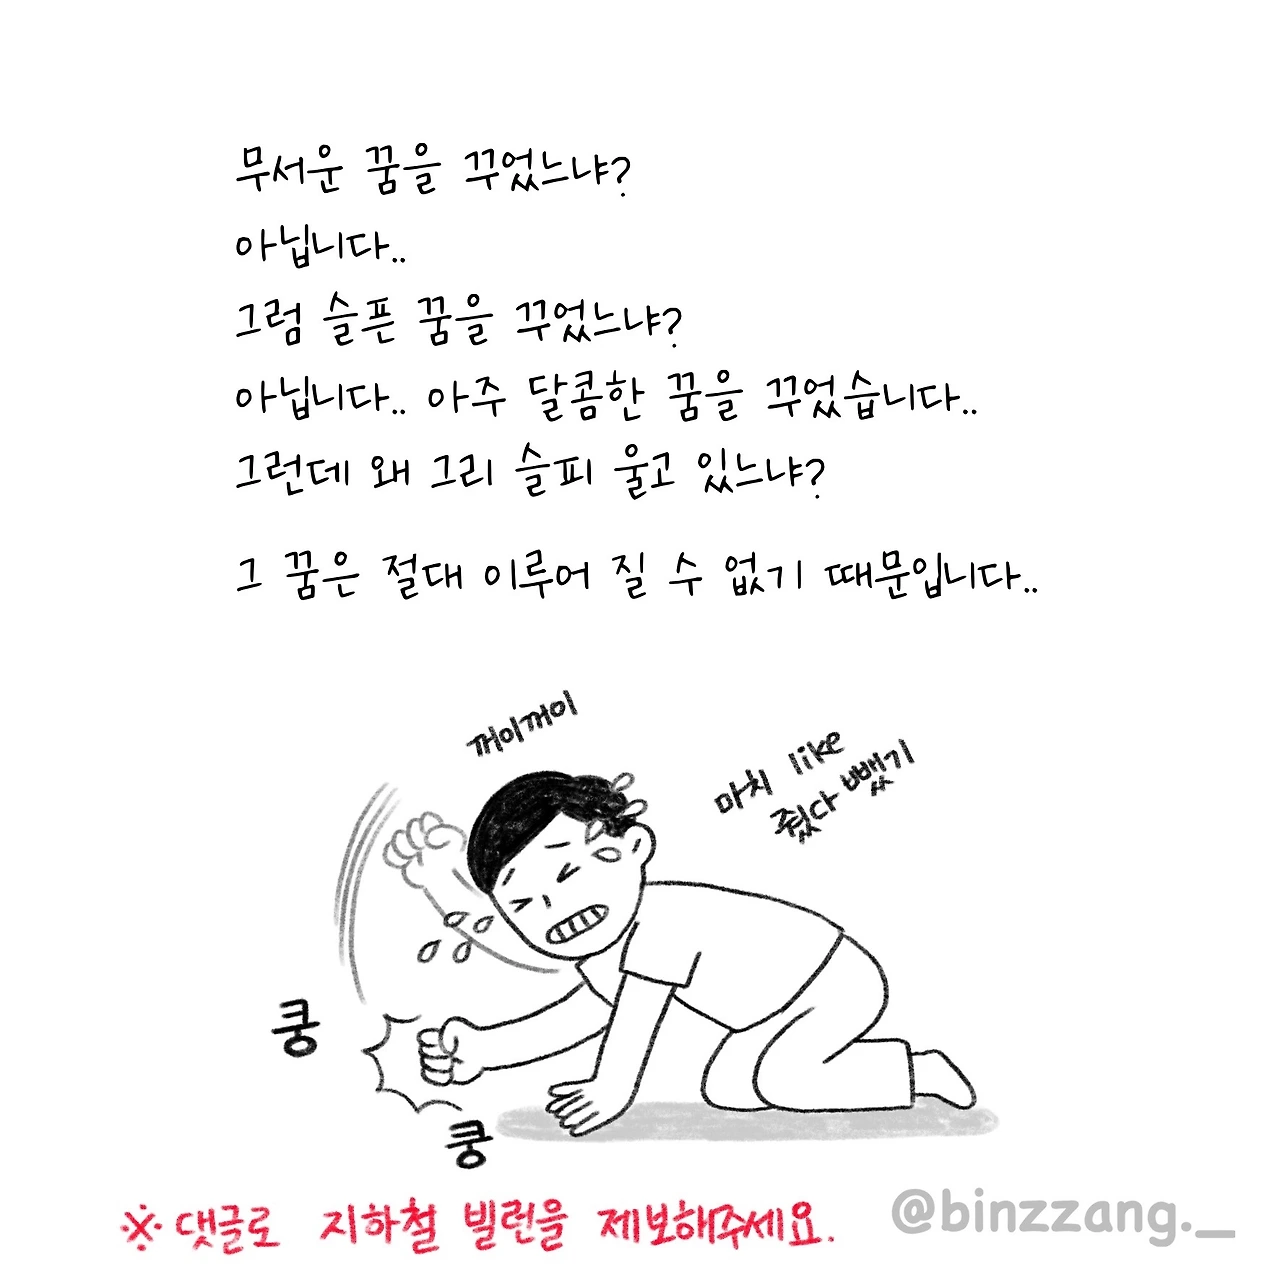 무서운 꿈을 꾸었느냐?
아닙니다..
그럼 슬픈 꿈을 꾸었느냐?
아닙니다.. 아주 달콤한 꿈을 꾸었습니다..
그런데 왜 그리 슬피 울고 있느냐?
그 꿈은 절대 이루어 질 수 없기 때문입니다..
꺼이꺼이
마치 like
줬다 뺐기
쿵
쿵
※ 댓글로 지하철 빌런을 제보해주세요.
@binzzang._